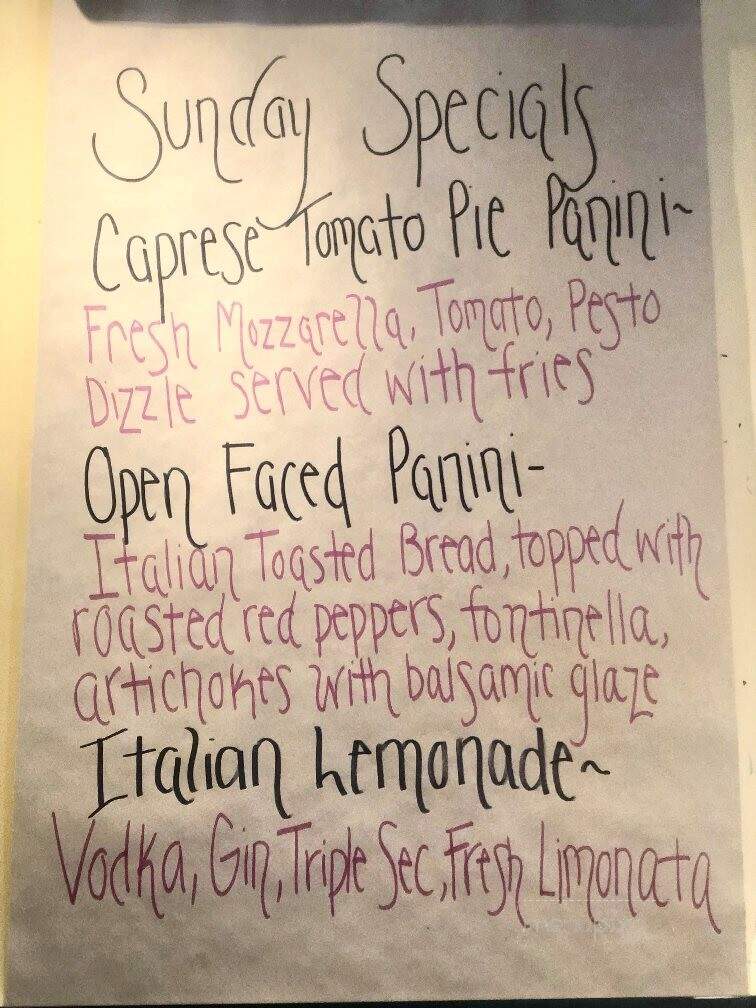 Sunday Specials
Caprese Tomato Pie Panini~
Fresh Mozzarella, Tomato, Pesto
Dizzle served with fries
Open Faced Panini-
Italian Toasted Bread, topped with
roasted red peppers, fontinella,
artichokes with balsamic glaze
Italian Lemonade~
Vodka, Gin, Triple Sec, Fresh Limonata